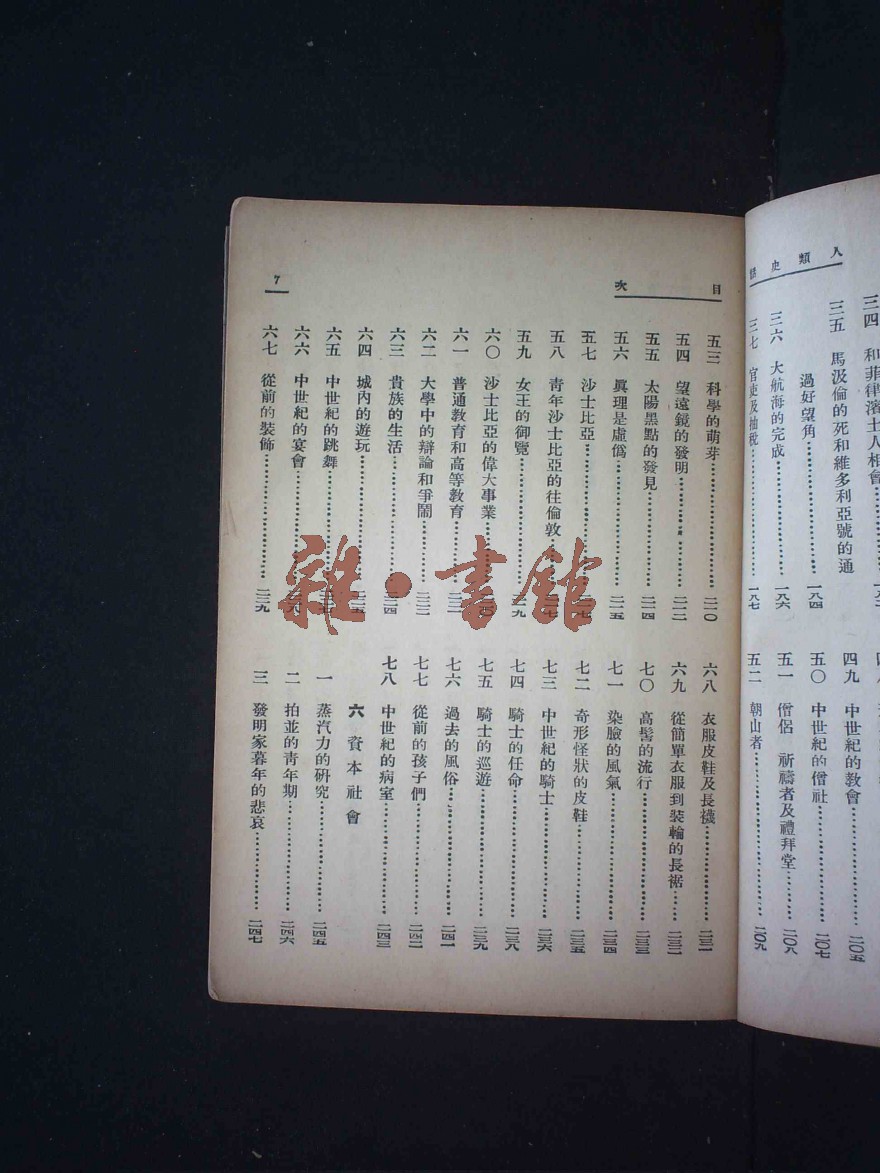 人類史話
三五 馬汲倫的死和維多利亞號的通
過好望角 一八四
三六 大航海的完成 一八六
三七 官吏及抽稅 一八七
四九 中世紀的教會 二〇五
五〇 中世紀的僧社 二〇七
五一 僧侶 祈禱者及禮拜堂 二〇八
五二 朝山者 二〇九
目次
7
五三 科學的萌芽 二一〇
五四 望遠鏡的發明 二一二
五五 太陽黑點的發見 二一四
五六 興理是虛僞 二一五
五七 沙士比亞
五八 靑年沙士比亞的往倫敦
五九 女王的御覽
六〇 沙士比亞的偉大事業
六一 普通教育和高等教育
六二 大學中的辯論和爭鬧 二二二
六三 貴族的生活
六四 城內的遊玩
六五 中世紀的跳舞
六六 中世紀的宴會
六七 從前的裝飾 二二九
六八 衣服皮鞋及長襪 二三一
六九 從簡單衣服到裝輪的長裾 二三二
七〇 高髻的流行 二三三
七一 染臉的風氣 二三四
七二 奇形怪狀的皮鞋 二三五
七三 中世紀的騎士 二三六
七四 騎士的任命 二三八
七五 騎士的巡遊 二三九
七六 過去的風俗 二四一
七七 從前的孩子們 二四二
七八 中世紀的病室 二四三
六 資本社會
一 蒸汽力的研究 二四五
二 拍並的靑年期 二四六
三 發明家暮年的悲哀 二四七
雜·書館